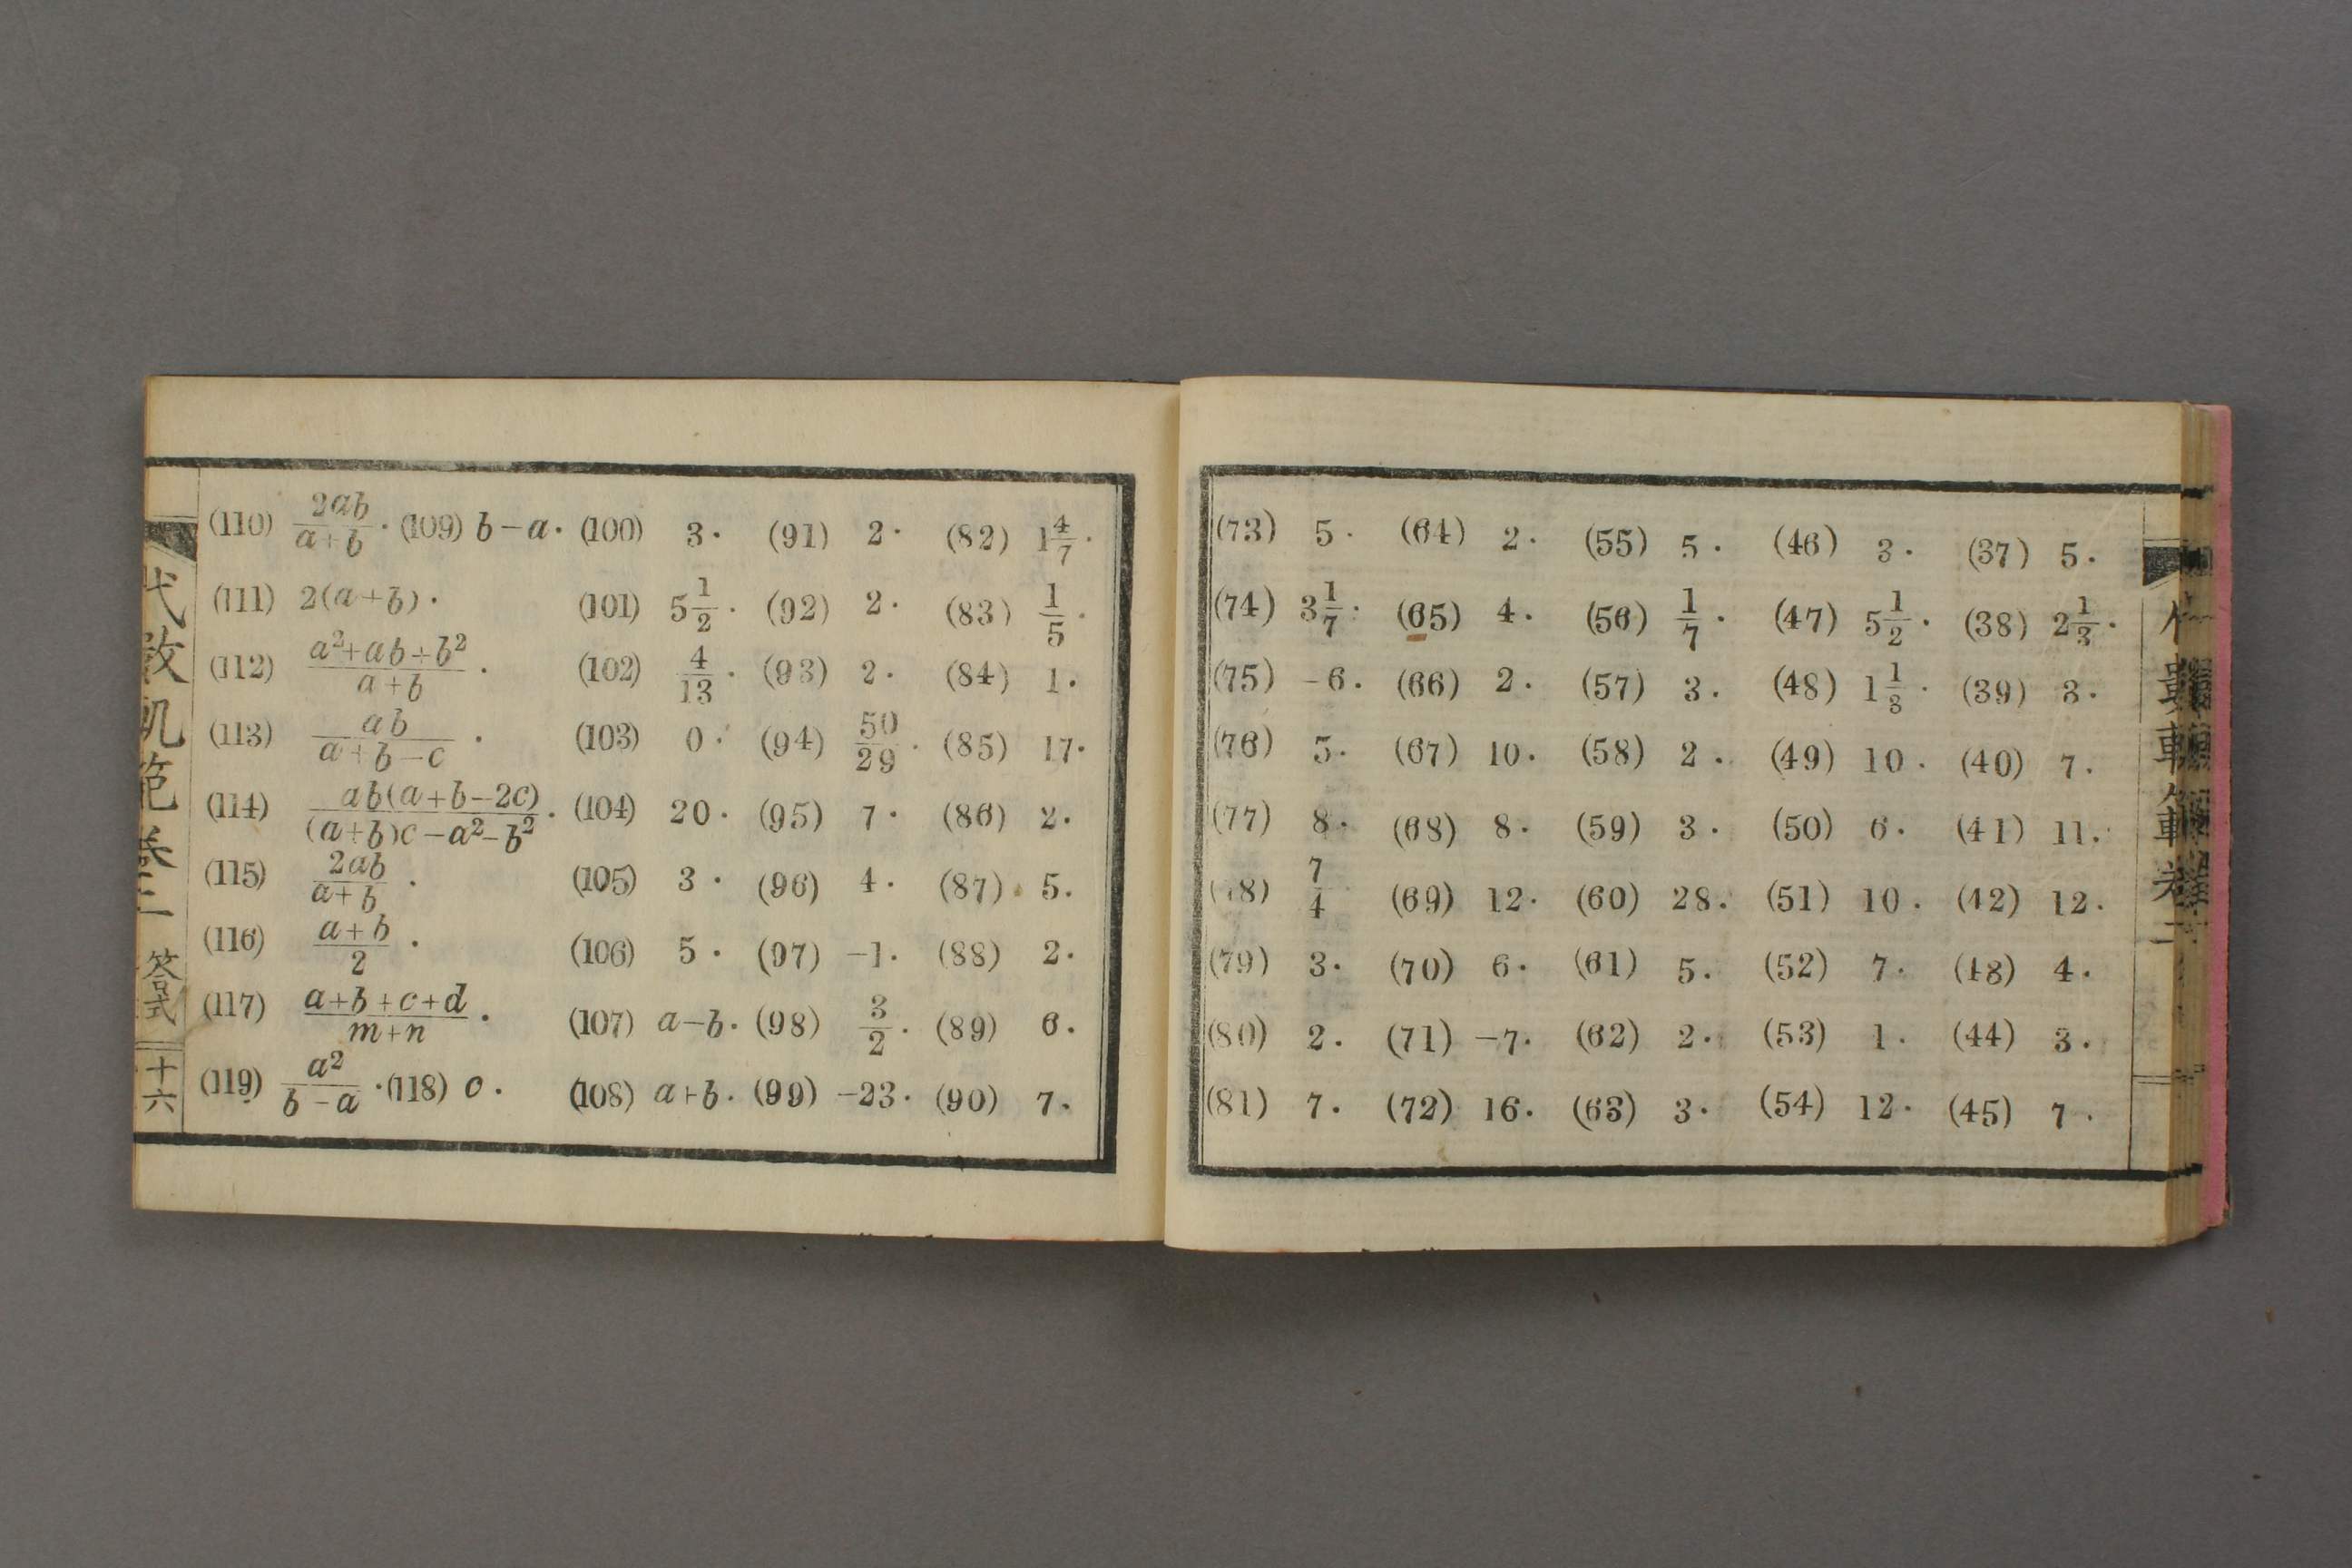 (37) 5.
(38) 2 1/3.
(39) 3.
(40) 7.
(41) 11.
(42) 12.
(43) 4.
(44) 3.
(45) 7.
(46) 3.
(47) 5 1/2.
(48) 1 1/3.
(49) 10.
(50) 6.
(51) 10.
(52) 7.
(53) 1.
(54) 12.
(55) 5.
(56) 1/7.
(57) 3.
(58) 2.
(59) 3.
(60) 28.
(61) 5.
(62) 2.
(63) 3.
(64) 2.
(65) 4.
(66) 2.
(67) 10.
(68) 8.
(69) 12.
(70) 6.
(71) −7.
(72) 16.
(73) 5.
(74) 3 1/7.
(75) −6.
(76) 5.
(77) 8.
(78) 7/4
(79) 3.
(80) 2.
(81) 7.
(82) 1 4/7.
(83) 1/5.
(84) 1.
(85) 17.
(86) 2.
(87) 5.
(88) 2.
(89) 6.
(90) 7.
(91) 2.
(92) 2.
(93) 2.
(94) 50/29.
(95) 7.
(96) 4.
(97) −1.
(98) 3/2.
(99) −23.
(100) 3.
(101) 5 1/2.
(102) 4/13.
(103) 0.
(104) 20.
(105) 3.
(106) 5.
(107) a−b.
(108) a+b.
(109) b−a.
(110) 2ab/(a+b).
(111) 2(a+b).
(112) (a²+ab+b²)/(a+b).
(113) ab/(a+b−c).
(114) ab(a+b−2c)/((a+b)c−a²−b²).
(115) 2ab/(a+b).
(116) (a+b)/2.
(117) (a+b+c+d)/(m+n).
(118) c.
(119) a²/(b−a).
代數備範卷二 答式 十六